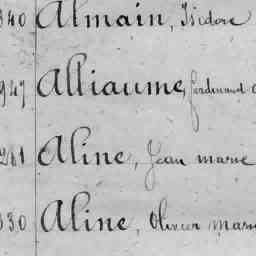 340 Almain, Isidore
947 Alliaume, Ferdinand
281 Aline, Jean marie
330 Aline, Olivier marie